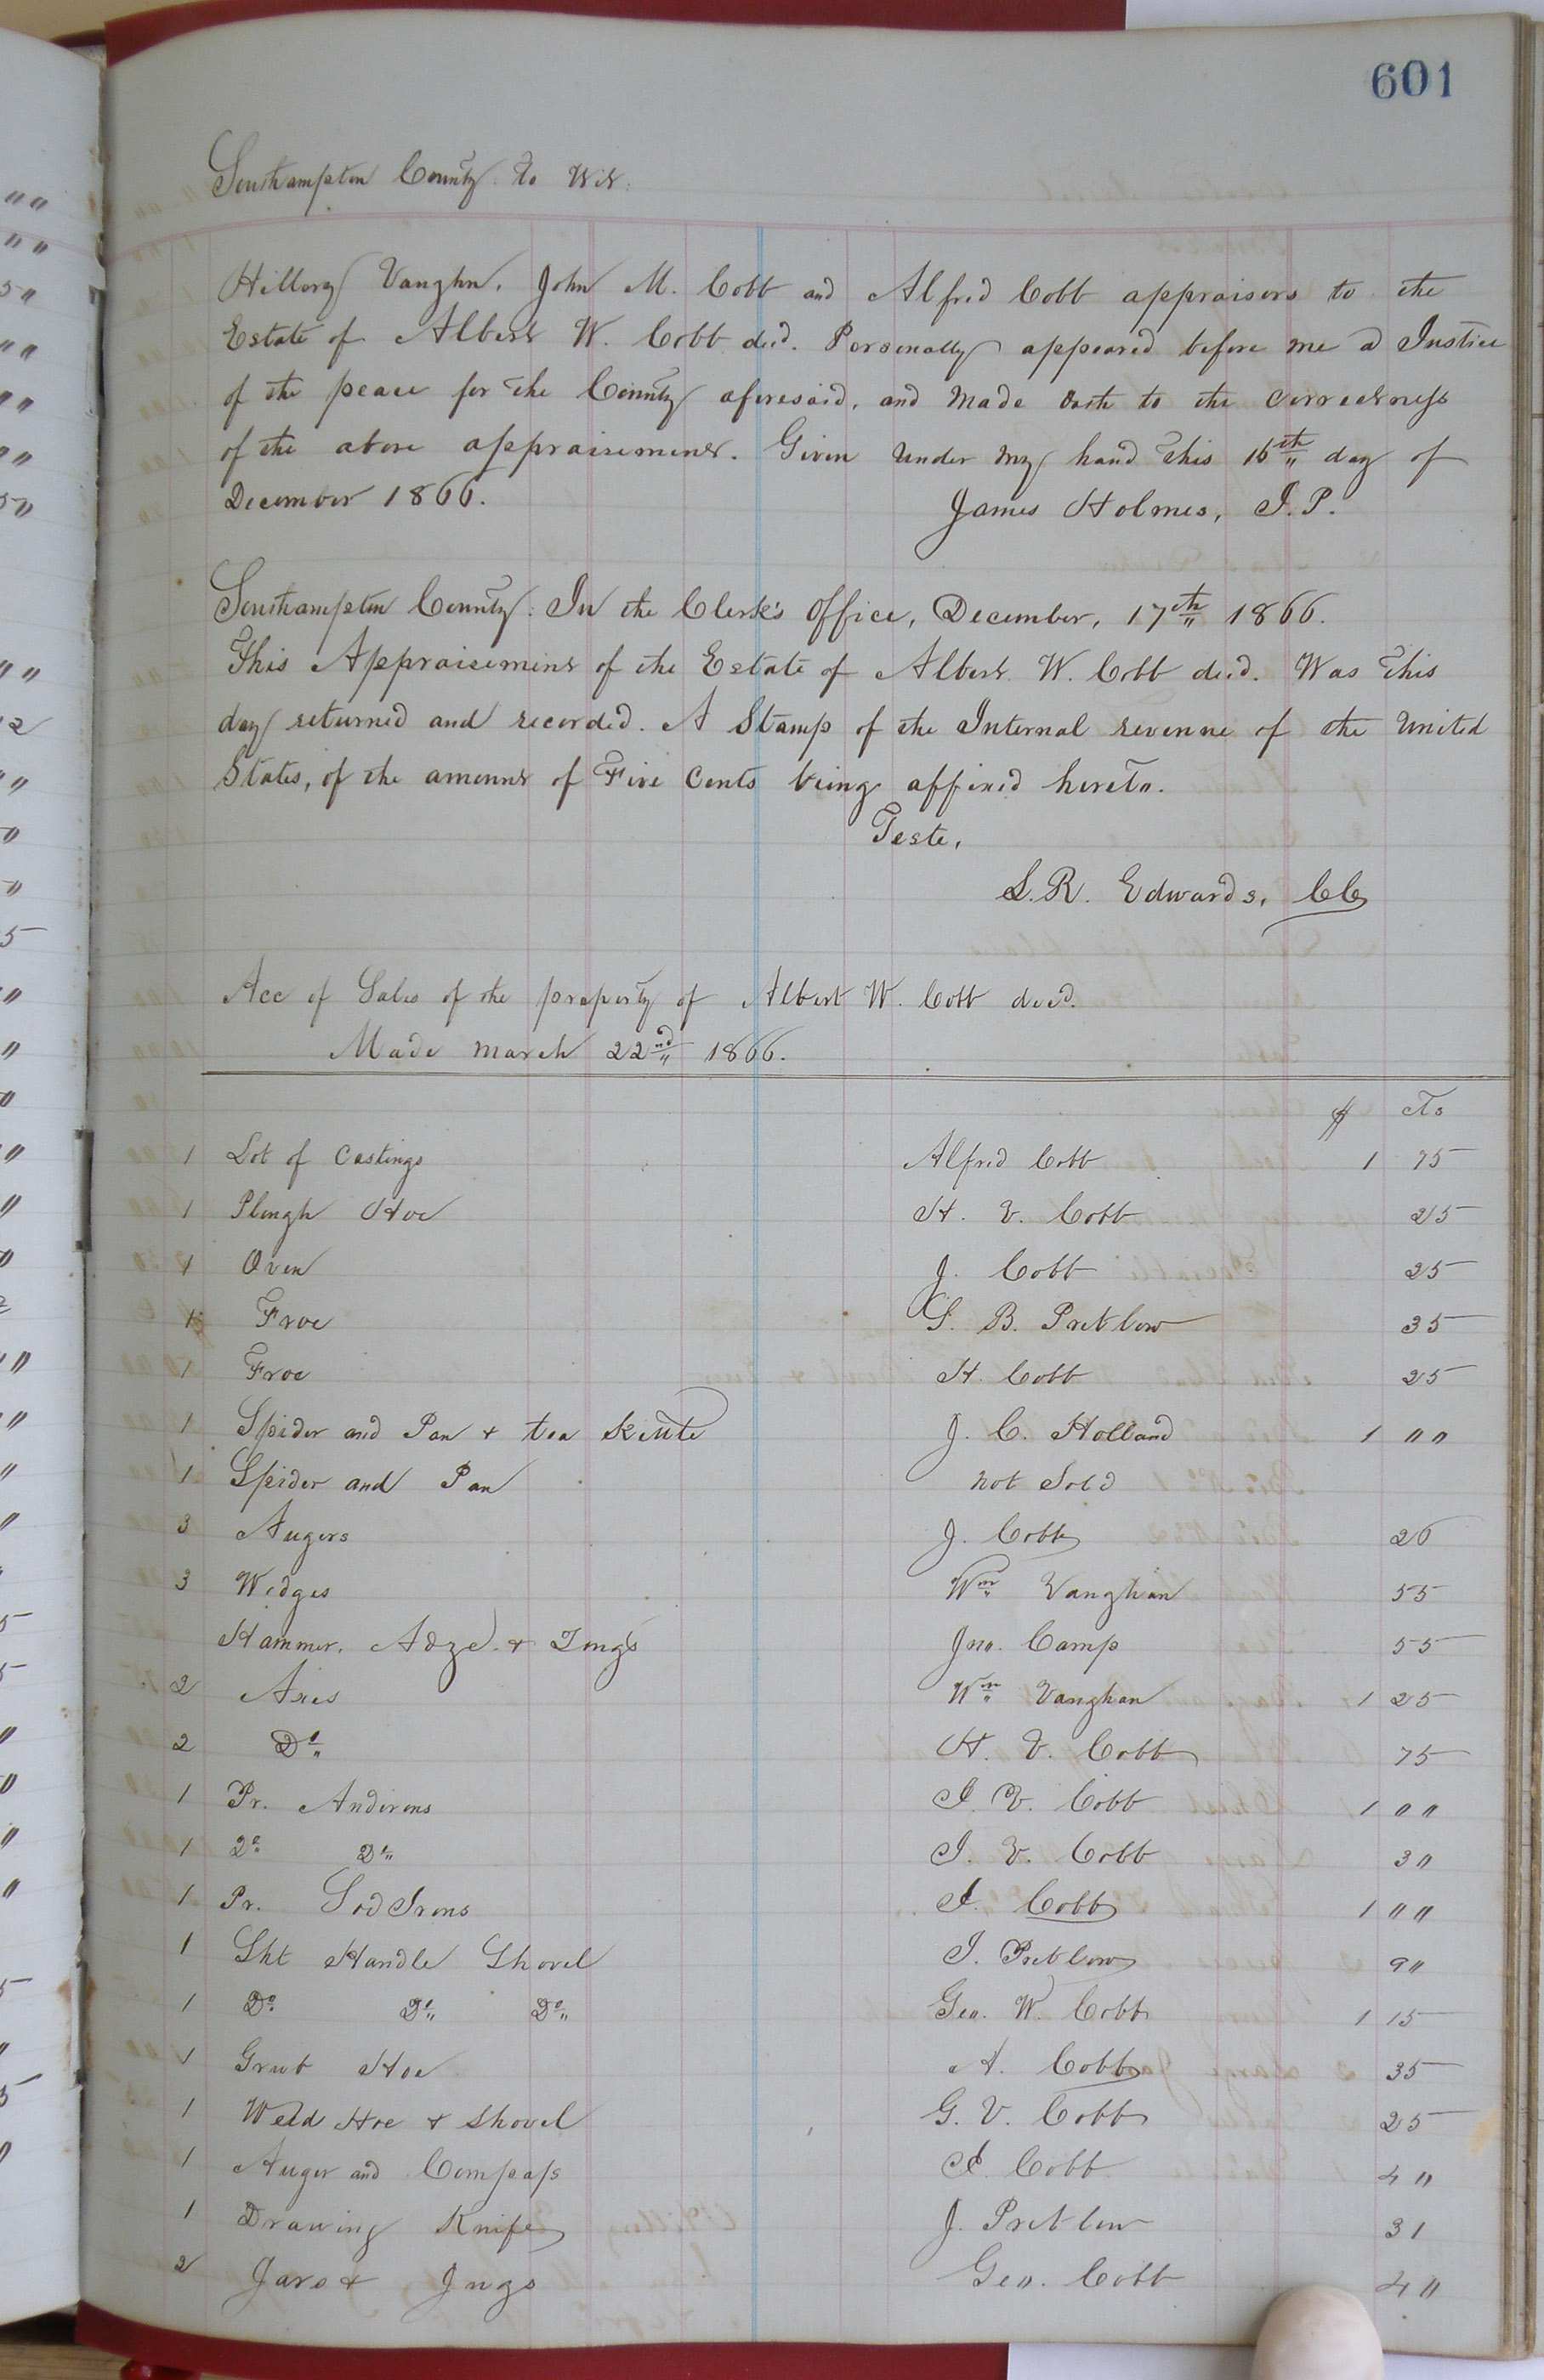 601
Southampton County to Wit:
Hillory Vaughn, John M. Cobb and Alfred Cobb appraisors to the
Estate of Albert W. Cobb decd. Personally appeared before me a Justice
of the peace for the County aforesaid, and Made Oath to the Correctness
of the above appraisement. Given Under My hand This 16th day of
December 1866. James Holmes, J. P.
Southampton County: In the Clerk's Office, December, 17th 1866.
This Appraisement of the Estate of Albert W. Cobb decd. Was This
day returned and recorded. A Stamp of the Internal revenue of the United
States, of the amount of Five Cents being affixed hereto.
Teste,
L. R. Edwards, CC
Acc of Sales of the property of Albert W. Cobb decd.
Made March 22nd 1866.
$ Cts
1 Lot of Castings Alfred Cobb 1 75
1 Plough Hoe H. V. Cobb 25
1 Oven J. Cobb 25
1 Froe S. B. Pretlow 35
1 Froe H. Cobb 25
1 Spider and Pan + tea Kittle J. C. Holland 1 " "
1 Spider and Pan not Sold
3 Augers J. Cobb 26
3 Wedges Wm Vaughan 55
Hammer, Adze + Tongs Jno. Camp 55
2 Axes Wm Vaughan 1 25
2 Do H. V. Cobb 75
1 Pr. Andirons J. V. Cobb 1 " "
1 Do Do J. V. Cobb 3 "
1 Pr. Sod Irons J. Cobb 1 " "
1 Sht Handle Shovel J. Pretlow 9 "
1 Do Do Do Geo. W. Cobb 1 15
1 Grub Hoe A. Cobb 35
1 Weed Hoe + Shovel G. V. Cobb 25
1 Auger and Compass J. Cobb 4 "
1 Drawing Knife J. Pretlow 31
2 Jars + Jugs Geo. Cobb 4 "